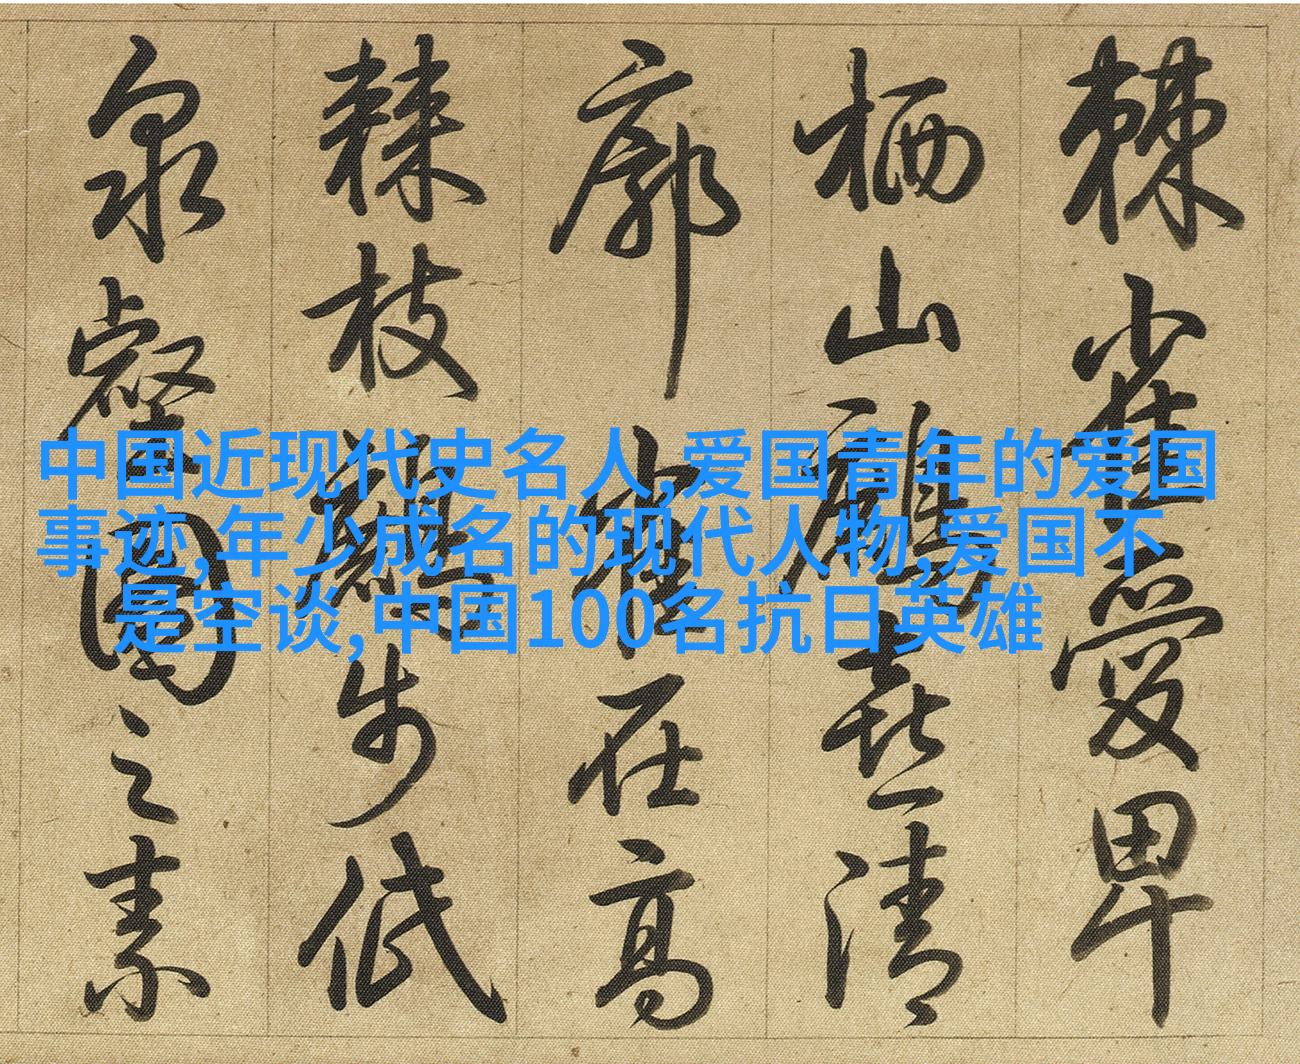 棘雀愛卑
栖山喜清
廓雀在高
棘枝步低
泉壑園之素
中国近现代史名人,爱国青年的爱国
事迹,年少成名的现代人物,爱国不
是空谈,中国100名抗日英雄